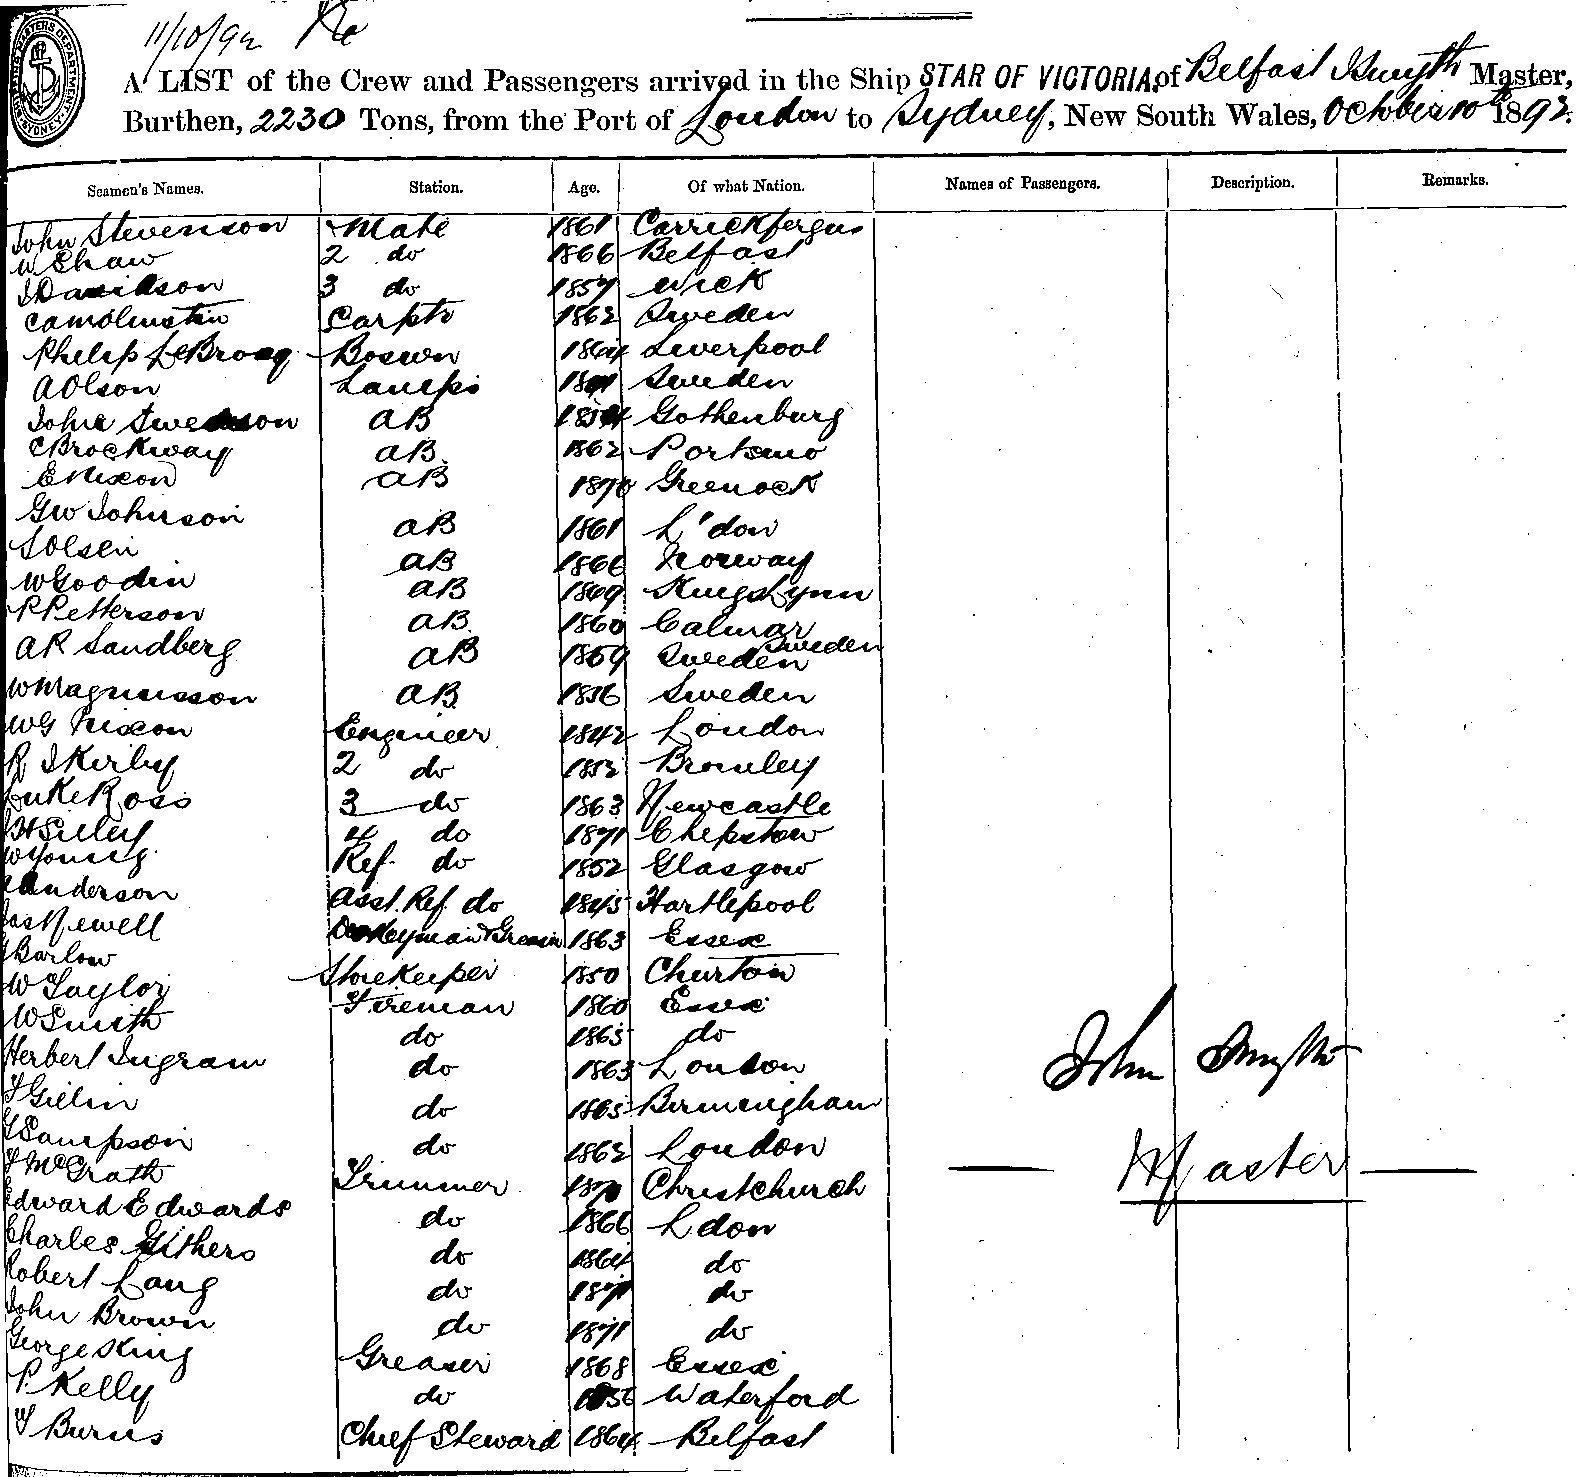 11/10/92
SHIPPING MASTERS DEPARTMENT SYDNEY
A LIST of the Crew and Passengers arrived in the Ship STAR OF VICTORIA, of Belfast Smyth Master,
Burthen, 2230 Tons, from the Port of London to Sydney, New South Wales, October 10th 1892.
Seamen's Names. Station. Age. Of what Nation. Names of Passengers. Description. Remarks.
John Stevenson Mate 1861 Carrickfergus
W Shaw 2 do 1866 Belfast
J Davidson 3 do 1857 Wick
Carptr 1862 Sweden
Philip Boswn 1864 Liverpool
A Olson Lamps Sweden
John AB Gothenburg
C Brockway AB 1862 Portsmo
E Nixon AB 1870 Greenock
GW Johnson AB 1861 L'don
S Olsen AB 1866 Norway
W Goodin AB 1869 Kings Lynn
P Petterson AB 1860 Calmar Sweden
AR Sandberg AB 1859 Sweden
W Magnusson AB 1856 Sweden
WG Nixon Engineer 1842 London
R J Kirby 2 do 1852 Bromley
Luke Ross 3 do 1863 Newcastle
4 do 1871 Chepstow
W Young Ref. do 1852 Glasgow
Anderson Asst. Ref do 1845 Hartlepool
Jas Newell Donkeyman & Greaser 1863 Essex
J Barlow Storekeeper 1850 Churton
W Taylor Fireman 1860 Essex
W Smith do 1865 do
Herbert Ingram do 1863 London
do 1865 Birmingham
G Sampson do 1862 London
J McGrath Trimmer 1870 Christchurch
Edward Edwards do 1866 Ldon
Charles Githers do 1864 do
Robert Lang do 1871 do
John Brown do 1871 do
George King Greaser 1868 Essex
P. Kelly do 1856 Waterford
J Burns Chief Steward 1864 Belfast
John Smyth
Master